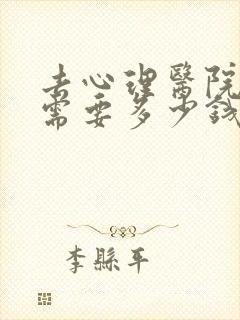 去心理醫院
需要多少錢
李縣平